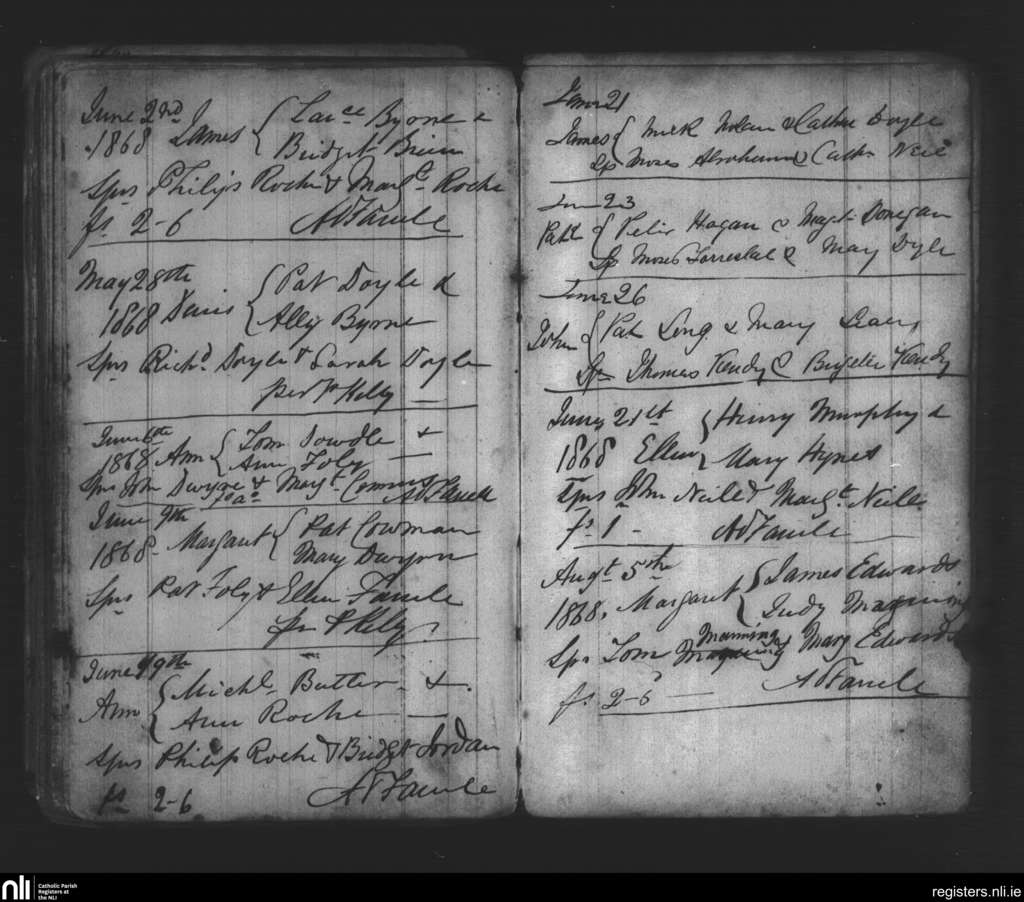 June 2nd
1868 James { Lau ce Byrne &
Bridget Brien
Sprs Philip Roche & Marg t Roche
fs 2-6 A D Farrell
May 28th
1868 Denis { Pat Doyle &
Ally Byrne
Sprs Rich d Doyle & Sarah Doyle
per P Kelly —
June 6th
1868 Ann { Tom Dowdle &
Ann Foley —
Sprs John Dwyre & Marg t
June 9th
1868 Margaret { Pat Cowman
Mary Dwyre
Sprs Pat Foley & Ellen Farrell
pr P Kelly
June 19th
Ann { Mich l Butler &
Ann Roche —
Sprs Philip Roche & Bridget Jordan
fs 2-6 A D Farrell
June 21
James { Mick Nolan & Cathe Doyle
Sp Moses & Cath Neil
June 23
Patk { Felix Hagan & Magt Donegan
Sp Moses Forrestal & Mary Dyle
June 26
John { Pat Long & Mary Leary
Sp Thomas Kendy & Kendy
June 21st
1868 Ellen { Henry Murphy &
Mary Hynes
Sprs John Neill & Marg t Neill
fs 1 - A D Farrell
Augt 5th
1868, Margaret { James Edwards
Judy Manning
Sprs Tom Manning & Mary Edwards
fs 2-6 — A D Farrell
nli Catholic Parish
Registers at
the NLI
registers.nli.ie